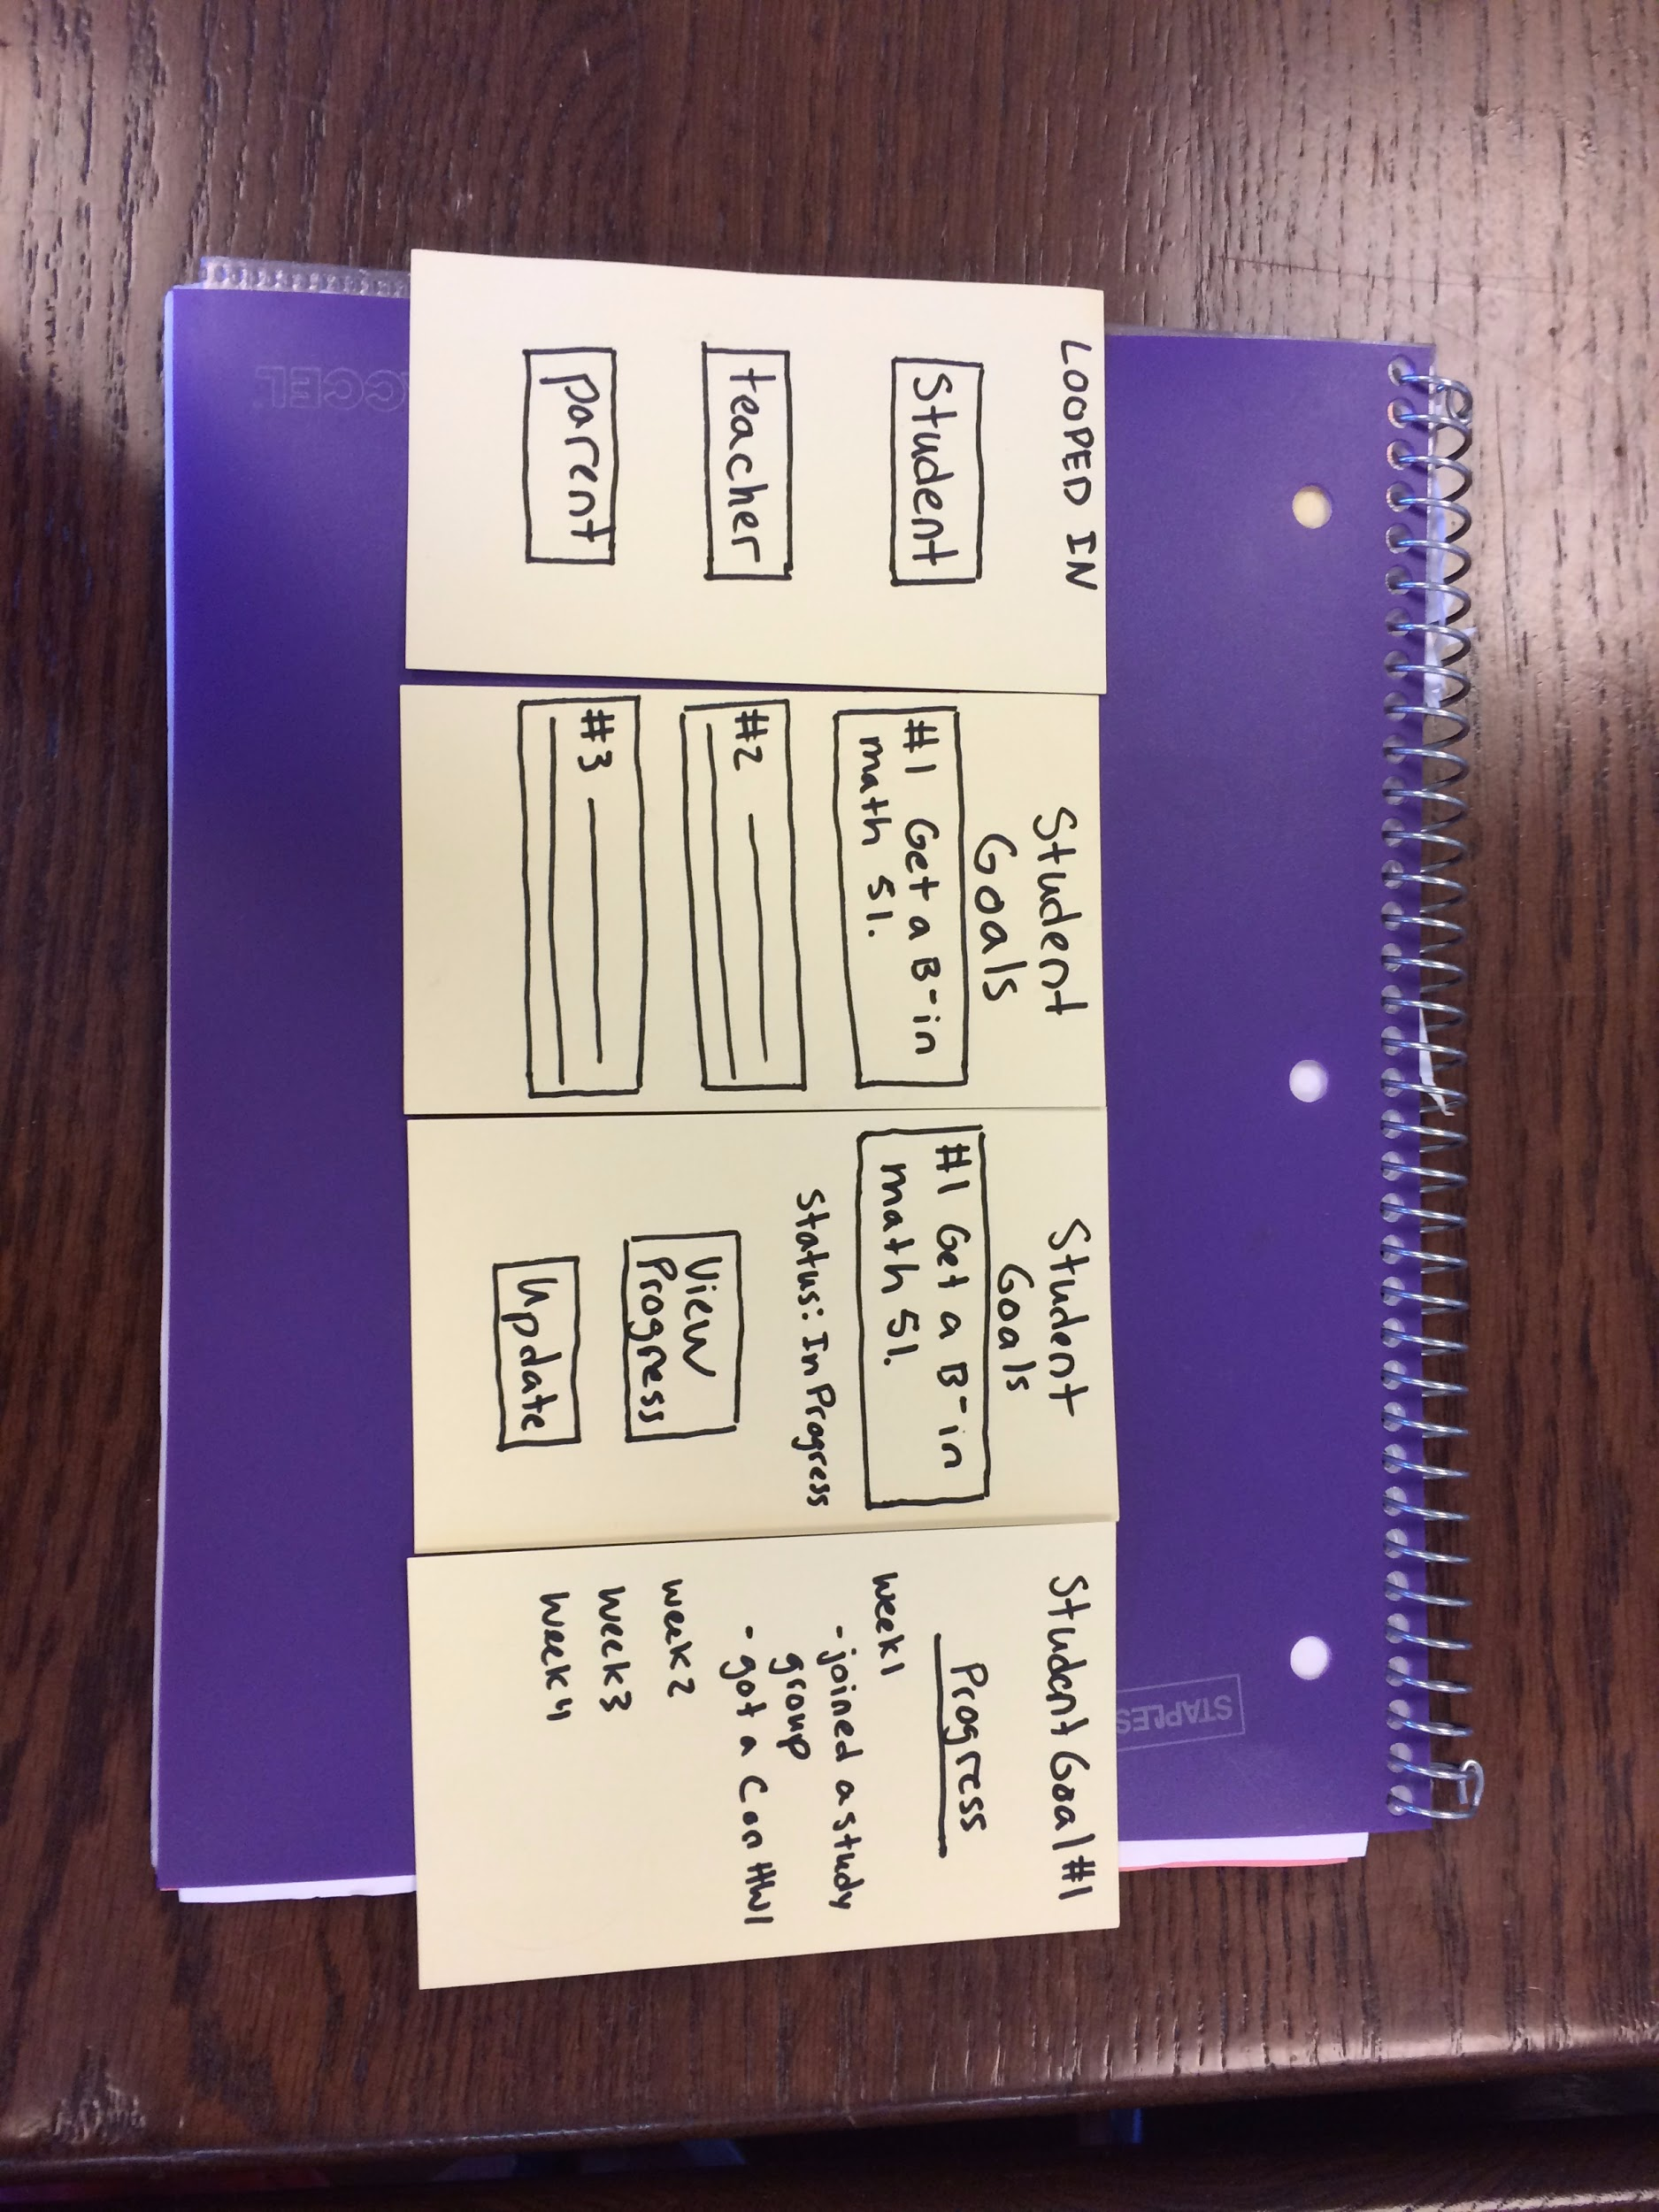 LOOPED IN
Student
teacher
parent
Student
Goals
#1 Get a B- in
math 51.
#2
#3
Student
Goals
#1 Get a B- in
math 51.
Status: In Progress
View
Progress
Update
Student Goal #1
Progress
week 1
- joined a study
group
- got a C on HW1
week 2
week 3
week 4
STAPLES
ACCEL